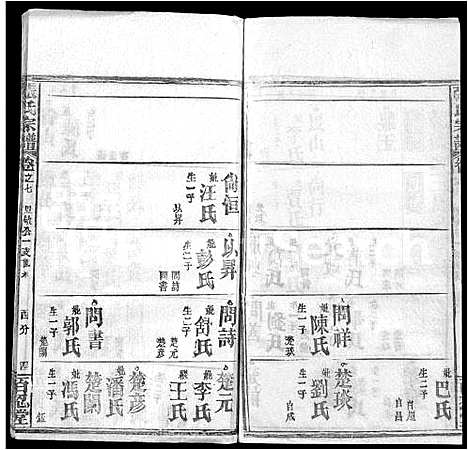 巴氏
妣
生二子
自昌
問祥
妣
陳氏
生一子
楚琰
楚琰
妣
劉氏
生一子
自成
尚恒
妣
汪氏
生一子
以昇
以昇
妣
彭氏
生二子
問詩
問書
問詩
妣
舒氏
生二子
楚元
楚彦
楚元
妣
李氏
王氏
楚彦
妣
潘氏
問書
妣
郭氏
生一子
楚蘭
楚蘭
妣
馮氏
生一子
氏宗譜
卷之七
百忍堂